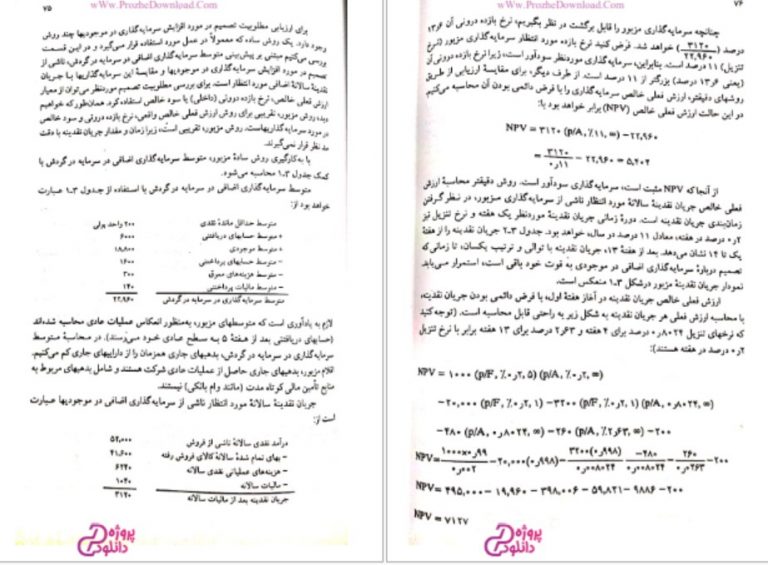 ۷۵
www.ProzheDownload.com
برای ارزیابی مطلوبیت تصمیم در مورد افزایش سرمایه‌گذاری در موجودیها چند روش
وجود دارد. یک روش ساده که معمولاً در عمل مورد استفاده قرار می‌گیرد و در این قسمت
بررسی می‌کنیم مبتنی بر پیش‌بینی متوسط سرمایه‌گذاری اضافی در سرمایه در گردش، ناشی از
تصمیم در مورد افزایش سرمایه‌گذاری در موجودیها و مقایسهٔ این سرمایه‌گذاریها با جریان
نقدینهٔ سالانهٔ اضافی مورد انتظار است. برای بررسی مطلوبیت تصمیم موردنظر می‌توان از معیار
ارزش فعلی خالص، نرخ بازده درونی (داخلی) یا سود خالص استفاده کرد. همان‌طور که خواهیم
دید، روش مزبور، تقریبی برای روش ارزش فعلی خالص واقعی، نرخ بازده درونی و سود خالص
در مورد سرمایه‌گذاریهاست. روش مزبور، تقریبی است، زیرا زمان و مقدار جریان نقدینه با دقت
مد نظر قرار نمی‌گیرند.
با به‌کارگیری روش سادهٔ مزبور، متوسط سرمایه‌گذاری اضافی در سرمایه در گردش با
کمک جدول ۳ـ۱ محاسبه می‌شود.
متوسط سرمایه‌گذاری اضافی در سرمایه در گردش با استفاده از جدول ۳ـ۱ عبارت
خواهد بود از:
متوسط حداقل ماندهٔ نقدی ۲۰۰ واحد پولی
+ متوسط حسابهای دریافتنی ۶۰۰۰
+ متوسط موجودی ۱۸٫۸۰۰
− متوسط حسابهای پرداختنی ۱۶۰۰
− متوسط هزینه‌های معوق ۳۰۰
− متوسط مالیات پرداختنی ۱۴۰
متوسط سرمایه‌گذاری در سرمایه در گردش ۲۲٫۹۶۰
لازم به یادآوری است که متوسطهای مزبور، به‌منظور انعکاس عملیات عادی محاسبه شده‌اند
(حسابهای دریافتنی بعد از هفتهٔ ۵ به سطح عادی خود می‌رسند). در محاسبهٔ متوسط
سرمایه‌گذاری در سرمایه در گردش، بدهیهای جاری همزمان را از داراییهای جاری کم می‌کنیم.
اقلام مزبور، بدهیهای جاری حاصل از عملیات عادی شرکت هستند و شامل بدهیهای مربوط به
منابع تأمین مالی کوتاه مدت (مانند وام بانکی) نیستند.
جریان نقدینهٔ سالانهٔ مورد انتظار ناشی از سرمایه‌گذاری اضافی در موجودیها عبارت
است از:
درآمد نقدی سالانهٔ ناشی از فروش ۵۲٫۰۰۰
− بهای تمام شدهٔ سالانهٔ کالای فروش رفته ۴۱٫۶۰۰
− هزینه‌های عملیاتی نقدی سالانه ۶۲۴۰
− مالیات سالانه ۱۰۴۰
جریان نقدینه بعد از مالیات سالانه ۳۱۲۰
پروژه
دانلود
۷۶
www.ProzheDownload.com
چنانچه سرمایه‌گذاری مزبور را قابل برگشت در نظر بگیریم، نرخ بازده درونی آن ۱۳٫۶
درصد (۳۱۲۰/۲۲٫۹۶۰) خواهد شد. فرض کنید نرخ بازده مورد انتظار سرمایه‌گذاری مزبور (نرخ
تنزیل) ۱۱ درصد است. بنابراین، سرمایه‌گذاری موردنظر سودآور است، زیرا نرخ بازده درونی آن
(یعنی ۱۳٫۶ درصد) بزرگتر از ۱۱ درصد است. از طرف دیگر، برای مقایسهٔ ارزیابی از طریق
روشهای دقیقتر، ارزش فعلی خالص سرمایه‌گذاری را با فرض دائمی بودن آن محاسبه می‌کنیم
در این حالت ارزش فعلی خالص (NPV) برابر خواهد بود با:
NPV = ۳۱۲۰ (p/A, ٪۱۱, ∞) −۲۲٫۹۶۰
= ۳۱۲۰/۰٫۱۱ − ۲۲٫۹۶۰ = ۵٫۴۰۴
از آنجا که NPV مثبت است، سرمایه‌گذاری سودآور است. روش دقیقتر محاسبهٔ ارزش
فعلی خالص جریان نقدینهٔ سالانهٔ مورد انتظار ناشی از سرمایه‌گذاری مزبور، در نظر گرفتن
زمان‌بندی جریان نقدینه است. دورهٔ زمانی جریان نقدینهٔ موردنظر یک هفته و نرخ تنزیل نیز
۰٫۲ درصد در هفته، معادل ۱۱ درصد در سال، خواهد بود. جدول ۳ـ۲ جریان نقدینه را از هفتهٔ
یک تا ۱۴ نشان می‌دهد. بعد از هفتهٔ ۱۳، جریان نقدینه با توالی و ترتیب یکسان، تا زمانی که
تصمیم دربارهٔ سرمایه‌گذاری اضافی در موجودی به قوت خود باقی است، استمرار می‌یابد
نمودار جریان نقدینهٔ مزبور درشکل ۳ـ۱ منعکس است.
ارزش فعلی خالص جریان نقدینه در آغاز هفتهٔ اول، با فرض دائمی بودن جریان نقدینه،
با محاسبه ارزش فعلی هر جریان نقدینه به شکل زیر به راحتی قابل محاسبه است. (توجه کنید
که نرخهای تنزیل ۰٫۸۰۲۴ درصد برای ۴ هفته و ۲٫۶۳ درصد برای ۱۳ هفته برابر با نرخ تنزیل
۰٫۲ درصد در هفته هستند):
NPV = ۱۰۰۰ (p/F, ٪۰٫۲, ۵) (p/A, ٪۰٫۲, ∞)
−۲۰٫۰۰۰ (p/F, ٪۰٫۲, ۱) −۳۲۰۰ (p/F, ٪۰٫۲, ۱) (p/A, ۰٫۸۰۲۴, ∞)
−۴۸۰ (p/A, ۰٫۸۰۲۴, ∞) −۲۶۰ (p/A, ٪۲٫۶۳, ∞) −۲۰۰
NPV= ۱۰۰۰×۰٫۹۹/۰٫۰۰۲ −۲۰٫۰۰۰(۰٫۹۹۸)− ۳۲۰۰(۰٫۹۹۸)/۰٫۰۰۸۰۲۴ −۴۸۰/۰٫۰۰۸۰۲۴ − ۲۶۰/۰٫۰۲۶۳ −۲۰۰
NPV= ۴۹۵٫۰۰۰− ۱۹٫۹۶۰ − ۳۹۸٫۰۰۶ − ۵۹٫۸۲۱− ۹۸۸۶ −۲۰۰
NPV = ۷۱۲۷
پروژه
دانلود